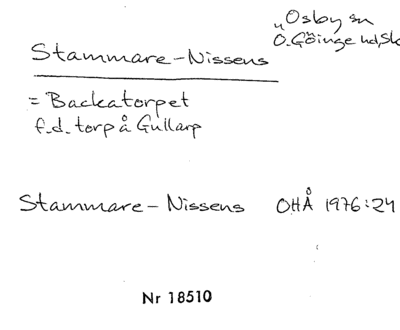 „Osby sn
Ö. Göinge hd, Sk
Stammare-Nissens
= Backatorpet
f.d. torp å Gullarp
Stammare-Nissens OHÅ 1976:24
Nr 18510